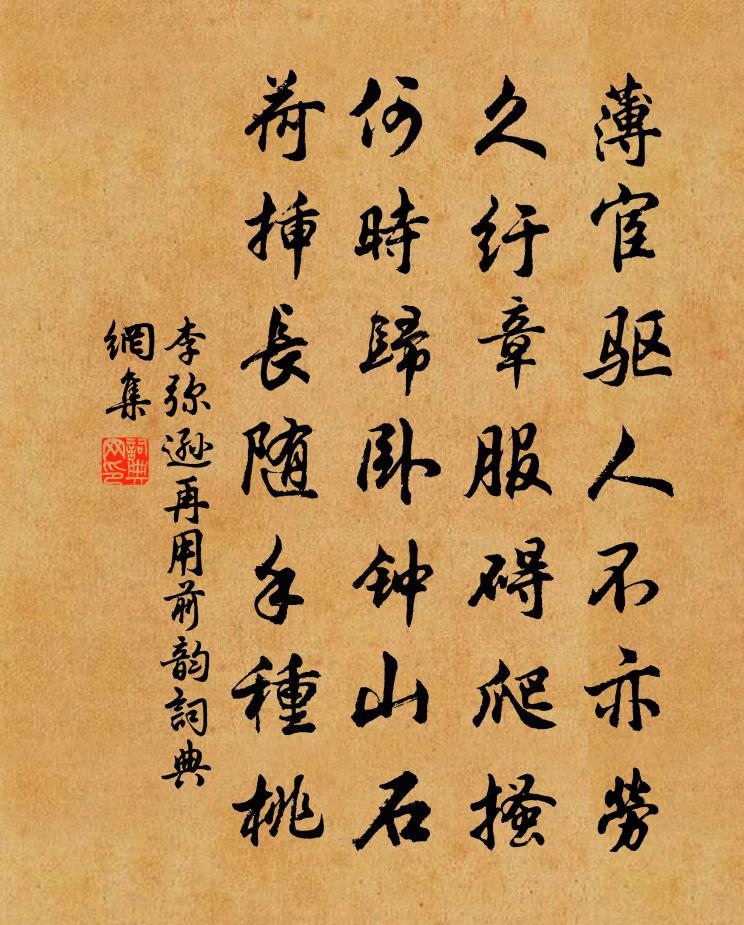 薄宦驱人不亦劳
久纡章服碍爬搔
何時歸卧钟山石
荷插長随手種桃
李弥遜再用前韵詞典
網集
詞典网印